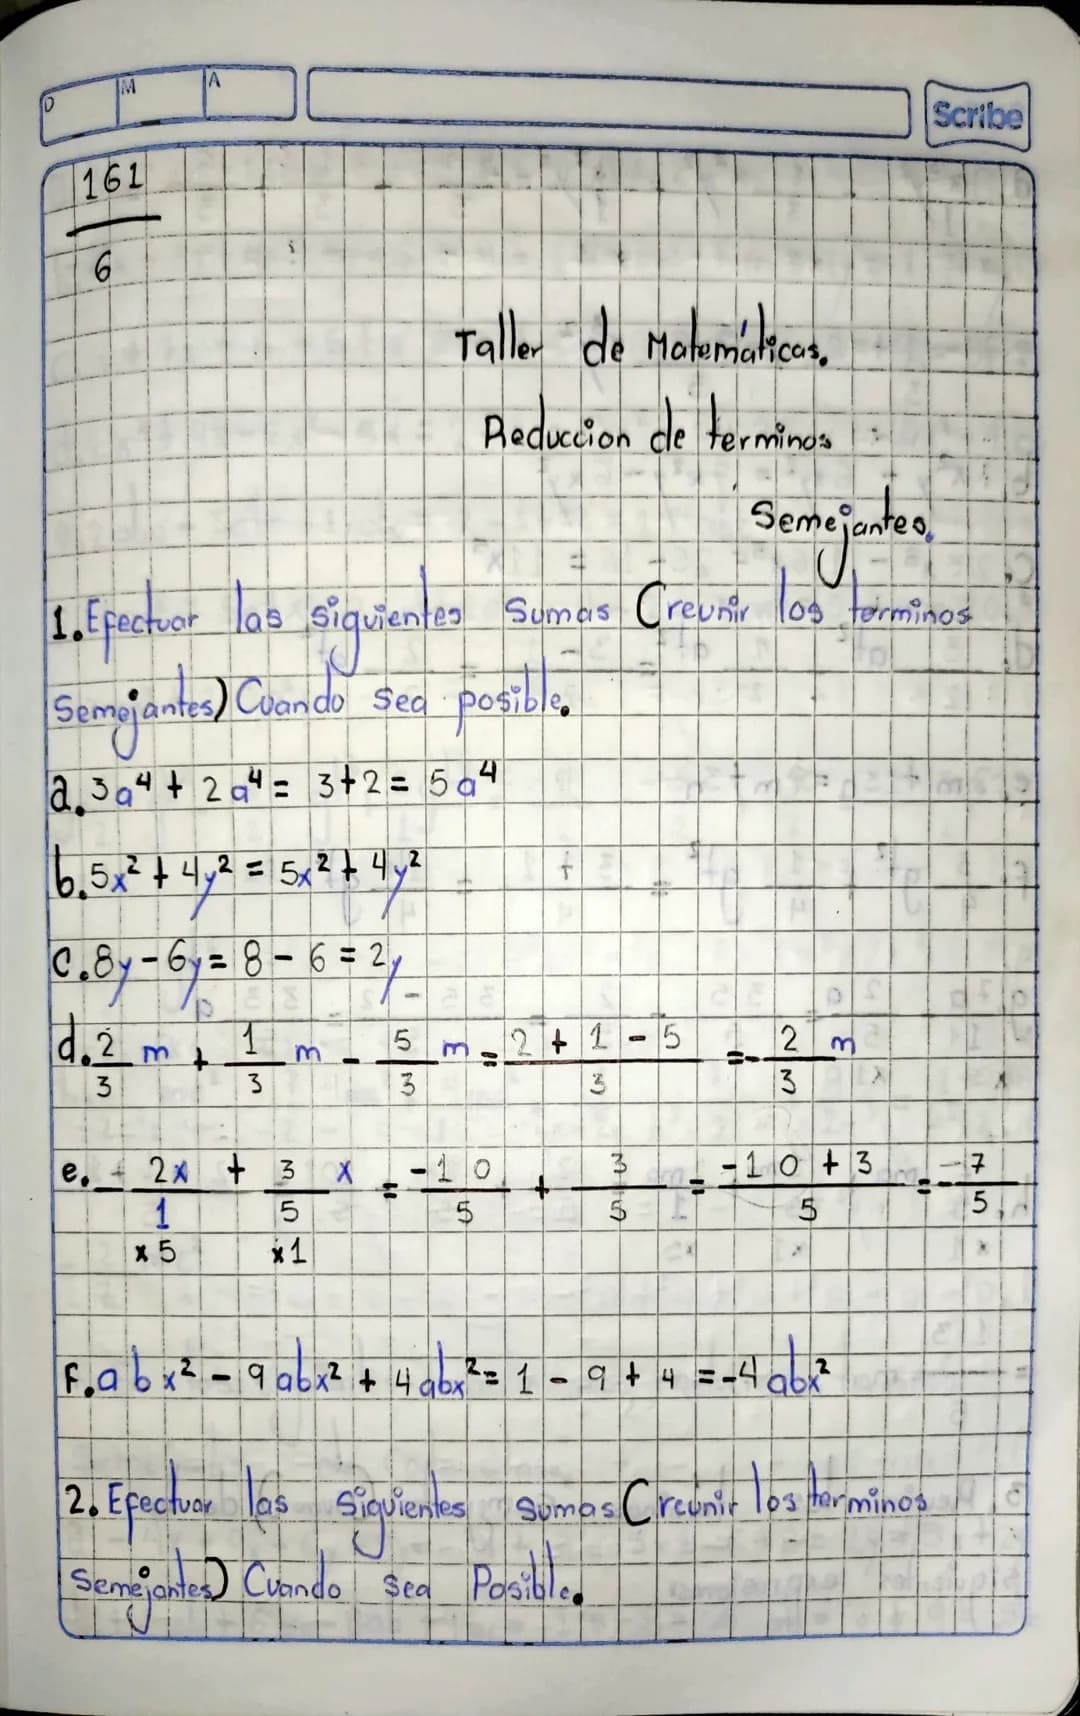 D M A
Scribe
161
6
Taller de Matemáticas.
Reduccion de terminos
Semejantes.
1. Efectuar las siguientes Sumas (reunir los terminos
Semejantes) Cuando sea posible.
a. 3a⁴ + 2a⁴ = 3+2 = 5a⁴
b. 5x² + 4y² = 5x² + 4y²
c. 8y - 6y = 8 - 6 = 2y
d. 2/3 m + 1/3 m - 5/3 m = 2 + 1 - 5 / 3 = - 2/3 m
e. - 2x/1 + 3/5 x = -10/5 + 3/5 = -10 + 3 / 5 = - -7/5
x 5 x 1
F. abx² - 9abx² + 4abx² = 1 - 9 + 4 = -4abx²
2. Efectuar las siguientes sumas (reunir los terminos
semejantes) Cuando sea Posible.